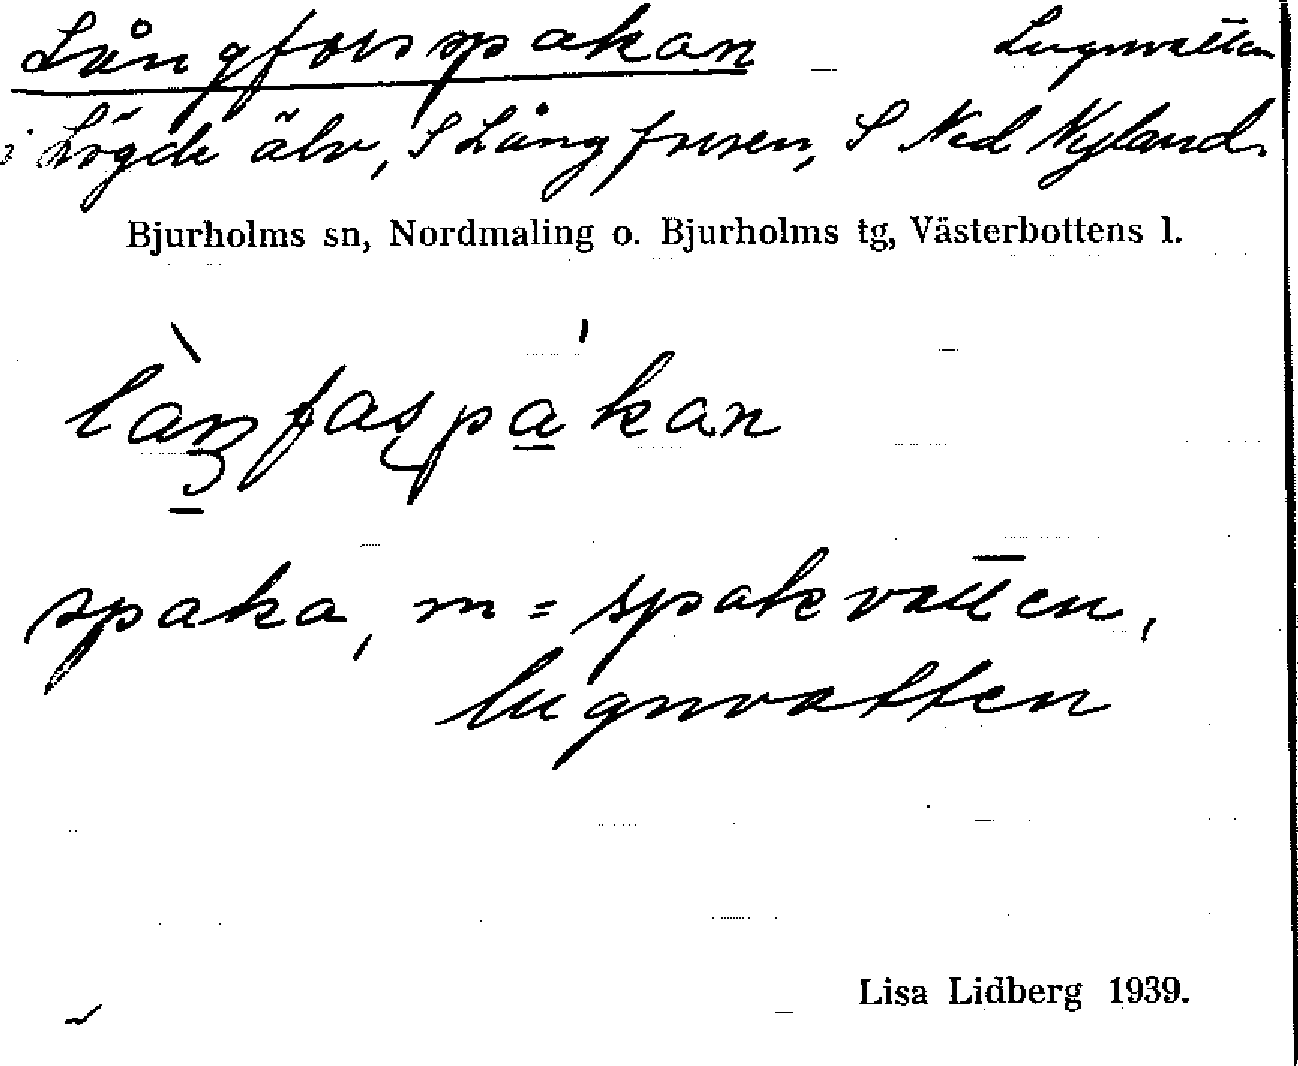 Långforsspakan Lugnvatten
i Lögde älv, S Långforsen, S Ned Nyland.
Bjurholms sn, Nordmaling o. Bjurholms tg, Västerbottens l.
spaka, m = spakvatten,
lugnvatten
Lisa Lidberg 1939.